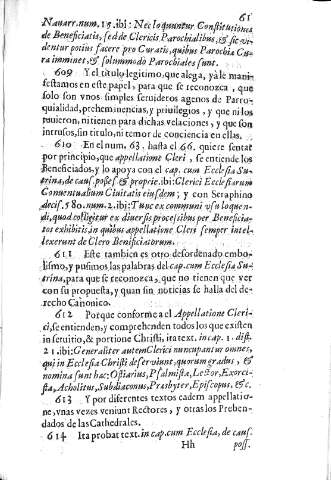 61
Nauarr. num. 15. ibi: Nec loquuntur Constitutiones
de Beneficiatis, sed de Clericis Parochialibus, & sic vi-
dentur potius facere pro Curatis, quibus Parochia Cu-
ra imminet, & solummodo Parochiales sunt.
609 Y el titulo legitimo, que alega, yà le mani-
festamos en este papel, para que se reconozca, que
solo son vnos simples seruideros agenos de Parro-
quialidad, prehminencias, y priuilegios, y que ni los
tuuieron, ni tienen para dichas velaciones, y que son
intrusos, sin titulo, ni temor de conciencia en ellas.
610 En el num. 63. hasta el 66. quiere sentar
por principio, que appellatione Cleri, se entiende los
Beneficiados, y lo apoya con el cap. cum Ecclesia Su-
trina, de caus. posses. & proprie. ibi: Clerici Ecclesiarum
Conuentualium Ciuitatis eiusdem; y con Seraphino
decis. 580. num. 2. ibi: Tunc ex communi vsu loquen-
di, quod colligitur ex diuersis processibus per Beneficia-
tos exhibitis in quibus appellatione Cleri semper intel-
lexerunt de Clero Beneficiatorum.
611 Este tambien es otro desordenado embo-
lismo, y pusimos las palabras del cap. cum Ecclesia Su-
trina, para que se reconozca, que no tienen que ver
con su propuesta, y quan sin noticias se halla del de-
recho Canonico.
612 Porque conforme a el Appellatione Cleri-
ci, se entienden, y comprehenden todos los que existen
in seruitio, & portione Christi, ita text. in cap. 1. dist.
21. ibi: Generaliter autem Clerici nuncupantur omnes,
qui in Ecclesia Christi deseruiunt, quorum gradus, &
nomina sunt hæc: Ostiarius, Psalmista, Lector, Exorcis-
ta, Acholitus, Subdiaconus, Presbyter, Episcopus, &c.
613 Y por diferentes textos cadem appellatio-
ne, vnas vezes veniunt Rectores, y otras los Preben-
dados de las Cathedrales.
614 Ita probat text. in cap. cum Ecclesia, de caus.
Hh poss.